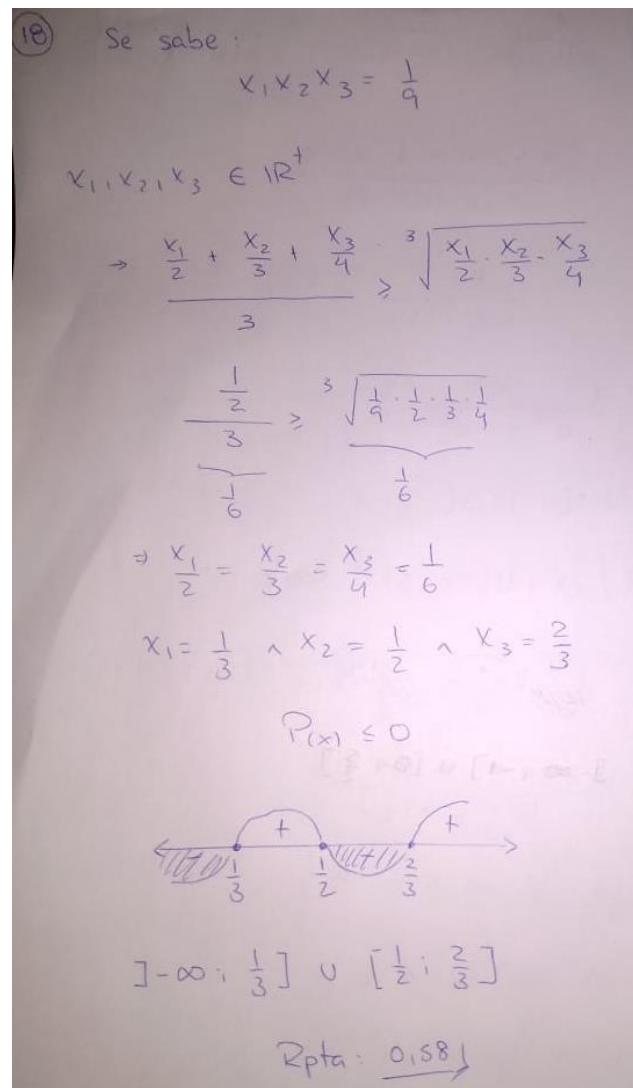 18 Se sabe:
x₁x₂x₃ = 1/9
x₁, x₂, x₃ ∈ ℝ⁺
→ (x₁/2 + x₂/3 + x₃/4)/3 ≥ ³√(x₁/2 · x₂/3 · x₃/4)
(1/2)/3 ≥ ³√(1/9 · 1/2 · 1/3 · 1/4)
1/6 1/6
⇒ x₁/2 = x₂/3 = x₃/4 = 1/6
x₁ = 1/3 ∧ x₂ = 1/2 ∧ x₃ = 2/3
P(x) ≤ 0
+ +
1/3 1/2 2/3
]-∞; 1/3] ∪ [1/2; 2/3]
Rpta: 0,58